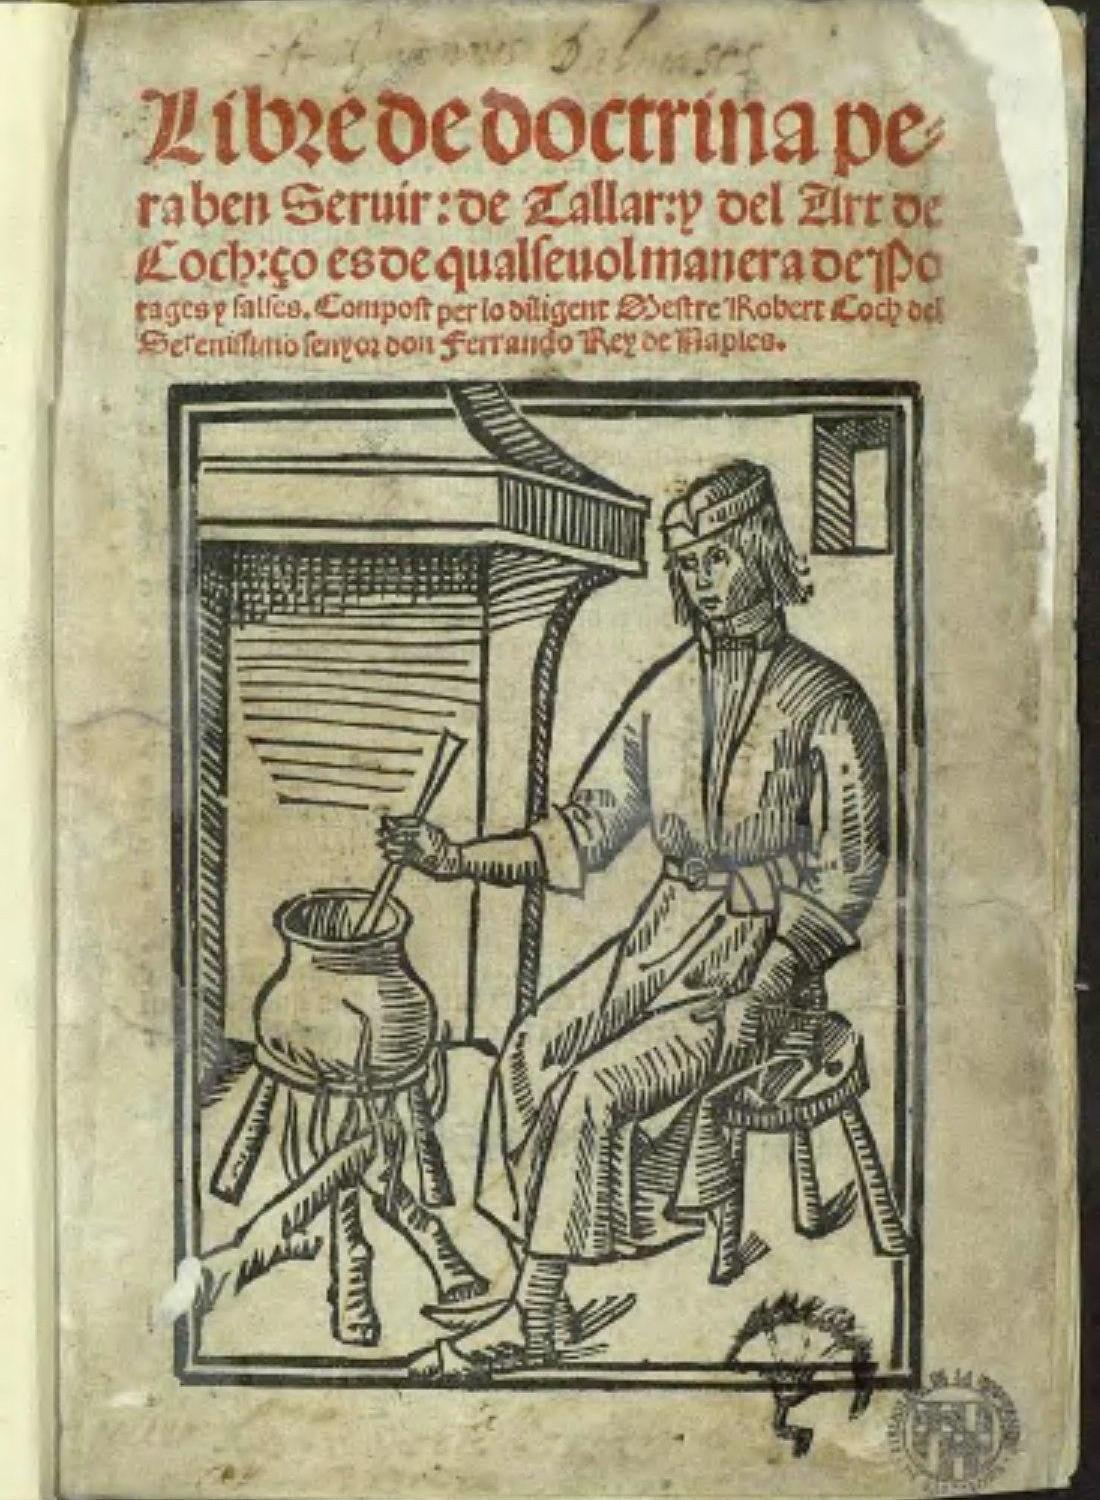 Libre de doctrina pe-
ra ben Seruir: de Tallar: y del Art de
Coch: ço es de qualseuol manera de Po
tages y salses. Compost per lo diligent Mestre Robert Coch del
Serenissimo senyor don Ferrando Rey de Naples.